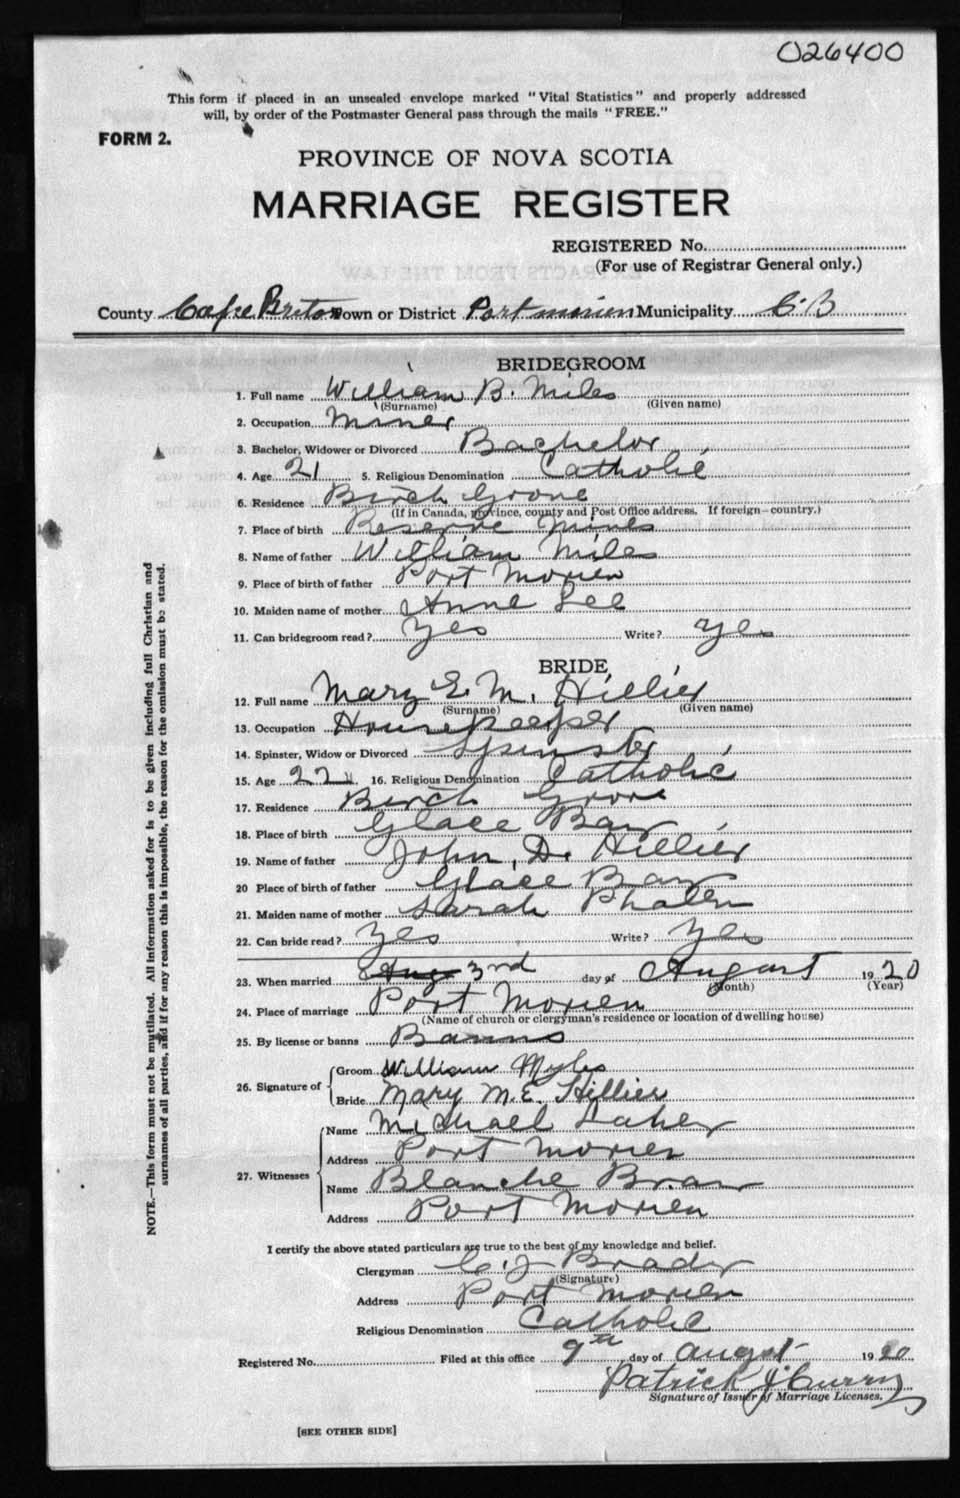 026400
This form if placed in an unsealed envelope marked "Vital Statistics" and properly addressed
will, by order of the Postmaster General pass through the mails "FREE."
FORM 2.
PROVINCE OF NOVA SCOTIA
MARRIAGE REGISTER
REGISTERED No.
(For use of Registrar General only.)
County Cape Breton Town or District Port morien Municipality C.B
BRIDEGROOM
1. Full name William B. Miles
(Surname) (Given name)
2. Occupation Miner
3. Bachelor, Widower or Divorced Bachelor
4. Age 21 5. Religious Denomination Catholic
6. Residence Birch Grove
(If in Canada, province, county and Post Office address. If foreign-country.)
7. Place of birth Reserve Mines
8. Name of father William Miles
9. Place of birth of father Port Morien
10. Maiden name of mother Anne Lee
11. Can bridegroom read? Yes Write? Yes
BRIDE
12. Full name Mary E. M. Hillier
(Surname) (Given name)
13. Occupation Housekeeper
14. Spinster, Widow or Divorced Spinster
15. Age 22 16. Religious Denomination Catholic
17. Residence Birch Grove
18. Place of birth Glace Bay
19. Name of father John D. Hillier
20 Place of birth of father Glace Bay
21. Maiden name of mother Sarah Phalen
22. Can bride read? Yes Write? Yes
23. When married Aug 3rd day of August 1920
(Month) (Year)
24. Place of marriage Port Morien
(Name of church or clergyman's residence or location of dwelling house)
25. By license or banns Banns
26. Signature of Groom William Myles
Bride Mary M.E. Hillier
27. Witnesses Name Michael
Address Port Morien
Name Blanche
Address Port Morien
I certify the above stated particulars are true to the best of my knowledge and belief.
Clergyman C. J. Brady
(Signature)
Address Port Morien
Religious Denomination Catholic
Registered No. Filed at this office 9th day of August 1920
Patrick J. Curry
Signature of Issuer of Marriage Licenses.
[SEE OTHER SIDE]
NOTE.—This form must not be mutilated. All information asked for is to be given including full Christian and
surnames of all parties, and if for any reason this is impossible, the reason for the omission must be stated.